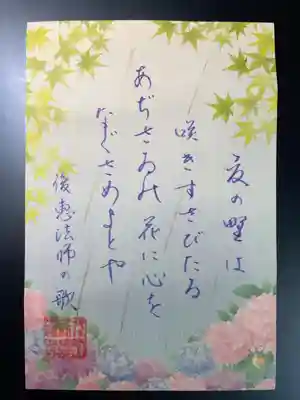 夏の野は
咲きすさびたる
あぢさゐの花に心を
なぐさめよとや
俊惠法師の歌